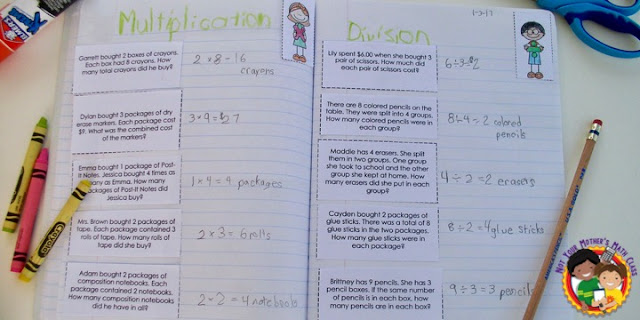 Multiplication
Garrett bought 2 boxes of crayons.
Each box had 8 crayons. How
many total crayons did he buy?
2 × 8 = 16
crayons
Dylan bought 3 packages of dry
erase markers. Each package cost
$9. What was the combined cost
of the markers?
3 × 9 = $27
Emma bought 1 package of Post-
It Notes. Jessica bought 4 times as
many as Emma. How many
packages of Post-It Notes did
Jessica buy?
1 × 4 = 4 packages
Mrs. Brown bought 2 packages of
tape. Each package contained 3
rolls of tape. How many rolls of
tape did she buy?
2 × 3 = 6 rolls
Adam bought 2 packages of
composition notebooks. Each
package contained 2 notebooks.
How many composition notebooks
did he have in all?
2 × 2 = 4 notebooks
1-3-17
Division
Lily spent $6.00 when she bought 3
pair of scissors. How much did
each pair of scissors cost?
6÷3=$2
There are 8 colored pencils on the
table. They were split into 4 groups.
How many colored pencils were in
each group?
8÷4=2 colored
pencils
Maddie has 4 erasers. She split
them in two groups. One group
she took to school and the other
group she kept at home. How
many erasers did she put in each
group?
4 ÷ 2 = 2 erasers
Cayden bought 2 packages of
glue sticks. There was a total of 8
glue sticks in the two packages.
How many glue sticks were in
each package?
8 ÷ 2 = 4 glue sticks
Brittney has 9 pencils. She has 3
pencil boxes. If the same number
of pencils is in each box, how
many pencils are in each box?
9 ÷ 3 = 3 pencils
NOT YOUR MOTHER'S MATH CLASS